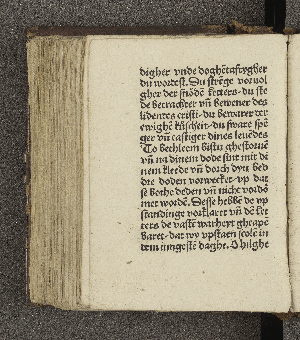 digher vnde doghētafftygher
du wordest. Du strēge voruol
gher der snödē ketters. du ste
de betrachter vñ bewener des
lidentes cristi. du bewarer der
ewighē küscheit. du sware spē
ger vñ castiger dines leuedes
To bethleem bistu ghestoruē
vñ na dinem dode sint mit di
nem kleede vñ dorch dyn bed
dre doden vorwecket. vp dat
se bothe deden vñ nicht vordō
met wordē. Desse hebbē de vp
standinge vorklaret vñ dē ket
ters de vaste warheyt gheapē
baret. dat wy vpstaen scolē in
dem iungestē daghe. O hilghe